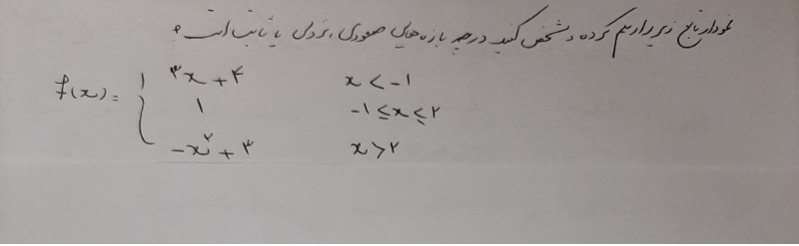 نمودار تابع زیر را رسم کرده و مشخص کنید در چه بازه‌هایی صعودی، نزولی یا ثابت است؟
۳x + ۴ x < -۱
f(x) = { ۱ -۱ ≤ x ≤ ۲
-x² + ۳ x > ۲